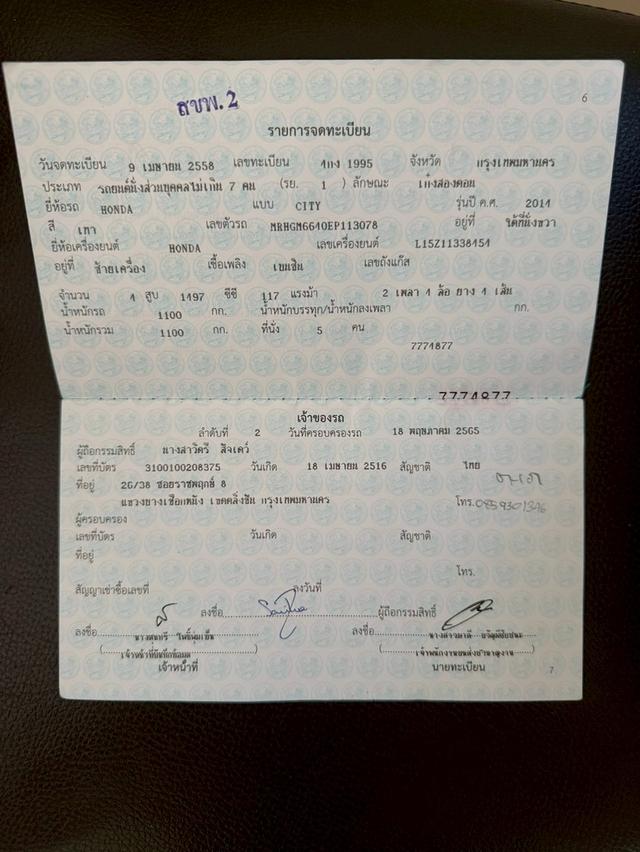 สขพ. 2
6
รายการจดทะเบียน
วันจดทะเบียน 9 เมษายน 2558 เลขทะเบียน 4กง 1995 จังหวัด กรุงเทพมหานคร
ประเภท รถยนต์นั่งส่วนบุคคลไม่เกิน 7 คน (รย. 1 ) ลักษณะ เก๋งสองตอน
ยี่ห้อรถ HONDA แบบ CITY รุ่นปี ค.ศ. 2014
สี เทา เลขตัวรถ MRHGM6640EP113078 อยู่ที่ ใต้ที่นั่งขวา
ยี่ห้อเครื่องยนต์ HONDA เลขเครื่องยนต์ L15Z11338454
อยู่ที่ ซ้ายเครื่อง เชื้อเพลิง เบนซิน เลขถังแก๊ส
จำนวน 4 สูบ 1497 ซีซี 117 แรงม้า 2 เพลา 4 ล้อ ยาง 4 เส้น
น้ำหนักรถ 1100 กก. น้ำหนักบรรทุก/น้ำหนักลงเพลา กก.
น้ำหนักรวม 1100 กก. ที่นั่ง 5 คน
7774877
7774877
เจ้าของรถ
ลำดับที่ 2 วันที่ครอบครองรถ 18 พฤษภาคม 2565
ผู้ถือกรรมสิทธิ์ นางสาวิตรี
เลขที่บัตร 3100100208375 วันเกิด 18 เมษายน 2516 สัญชาติ ไทย
ที่อยู่ 26/38 ซอยราชพฤกษ์ 8
แขวงบางเชือกหนัง เขตตลิ่งชัน กรุงเทพมหานคร โทร.
ผู้ครอบครอง
เลขที่บัตร วันเกิด สัญชาติ
ที่อยู่
โทร.
สัญญาเช่าซื้อเลขที่ ลงวันที่
ลงชื่อ ผู้ถือกรรมสิทธิ์
ลงชื่อ ลงชื่อ
เจ้าหน้าที่ นายทะเบียน
7